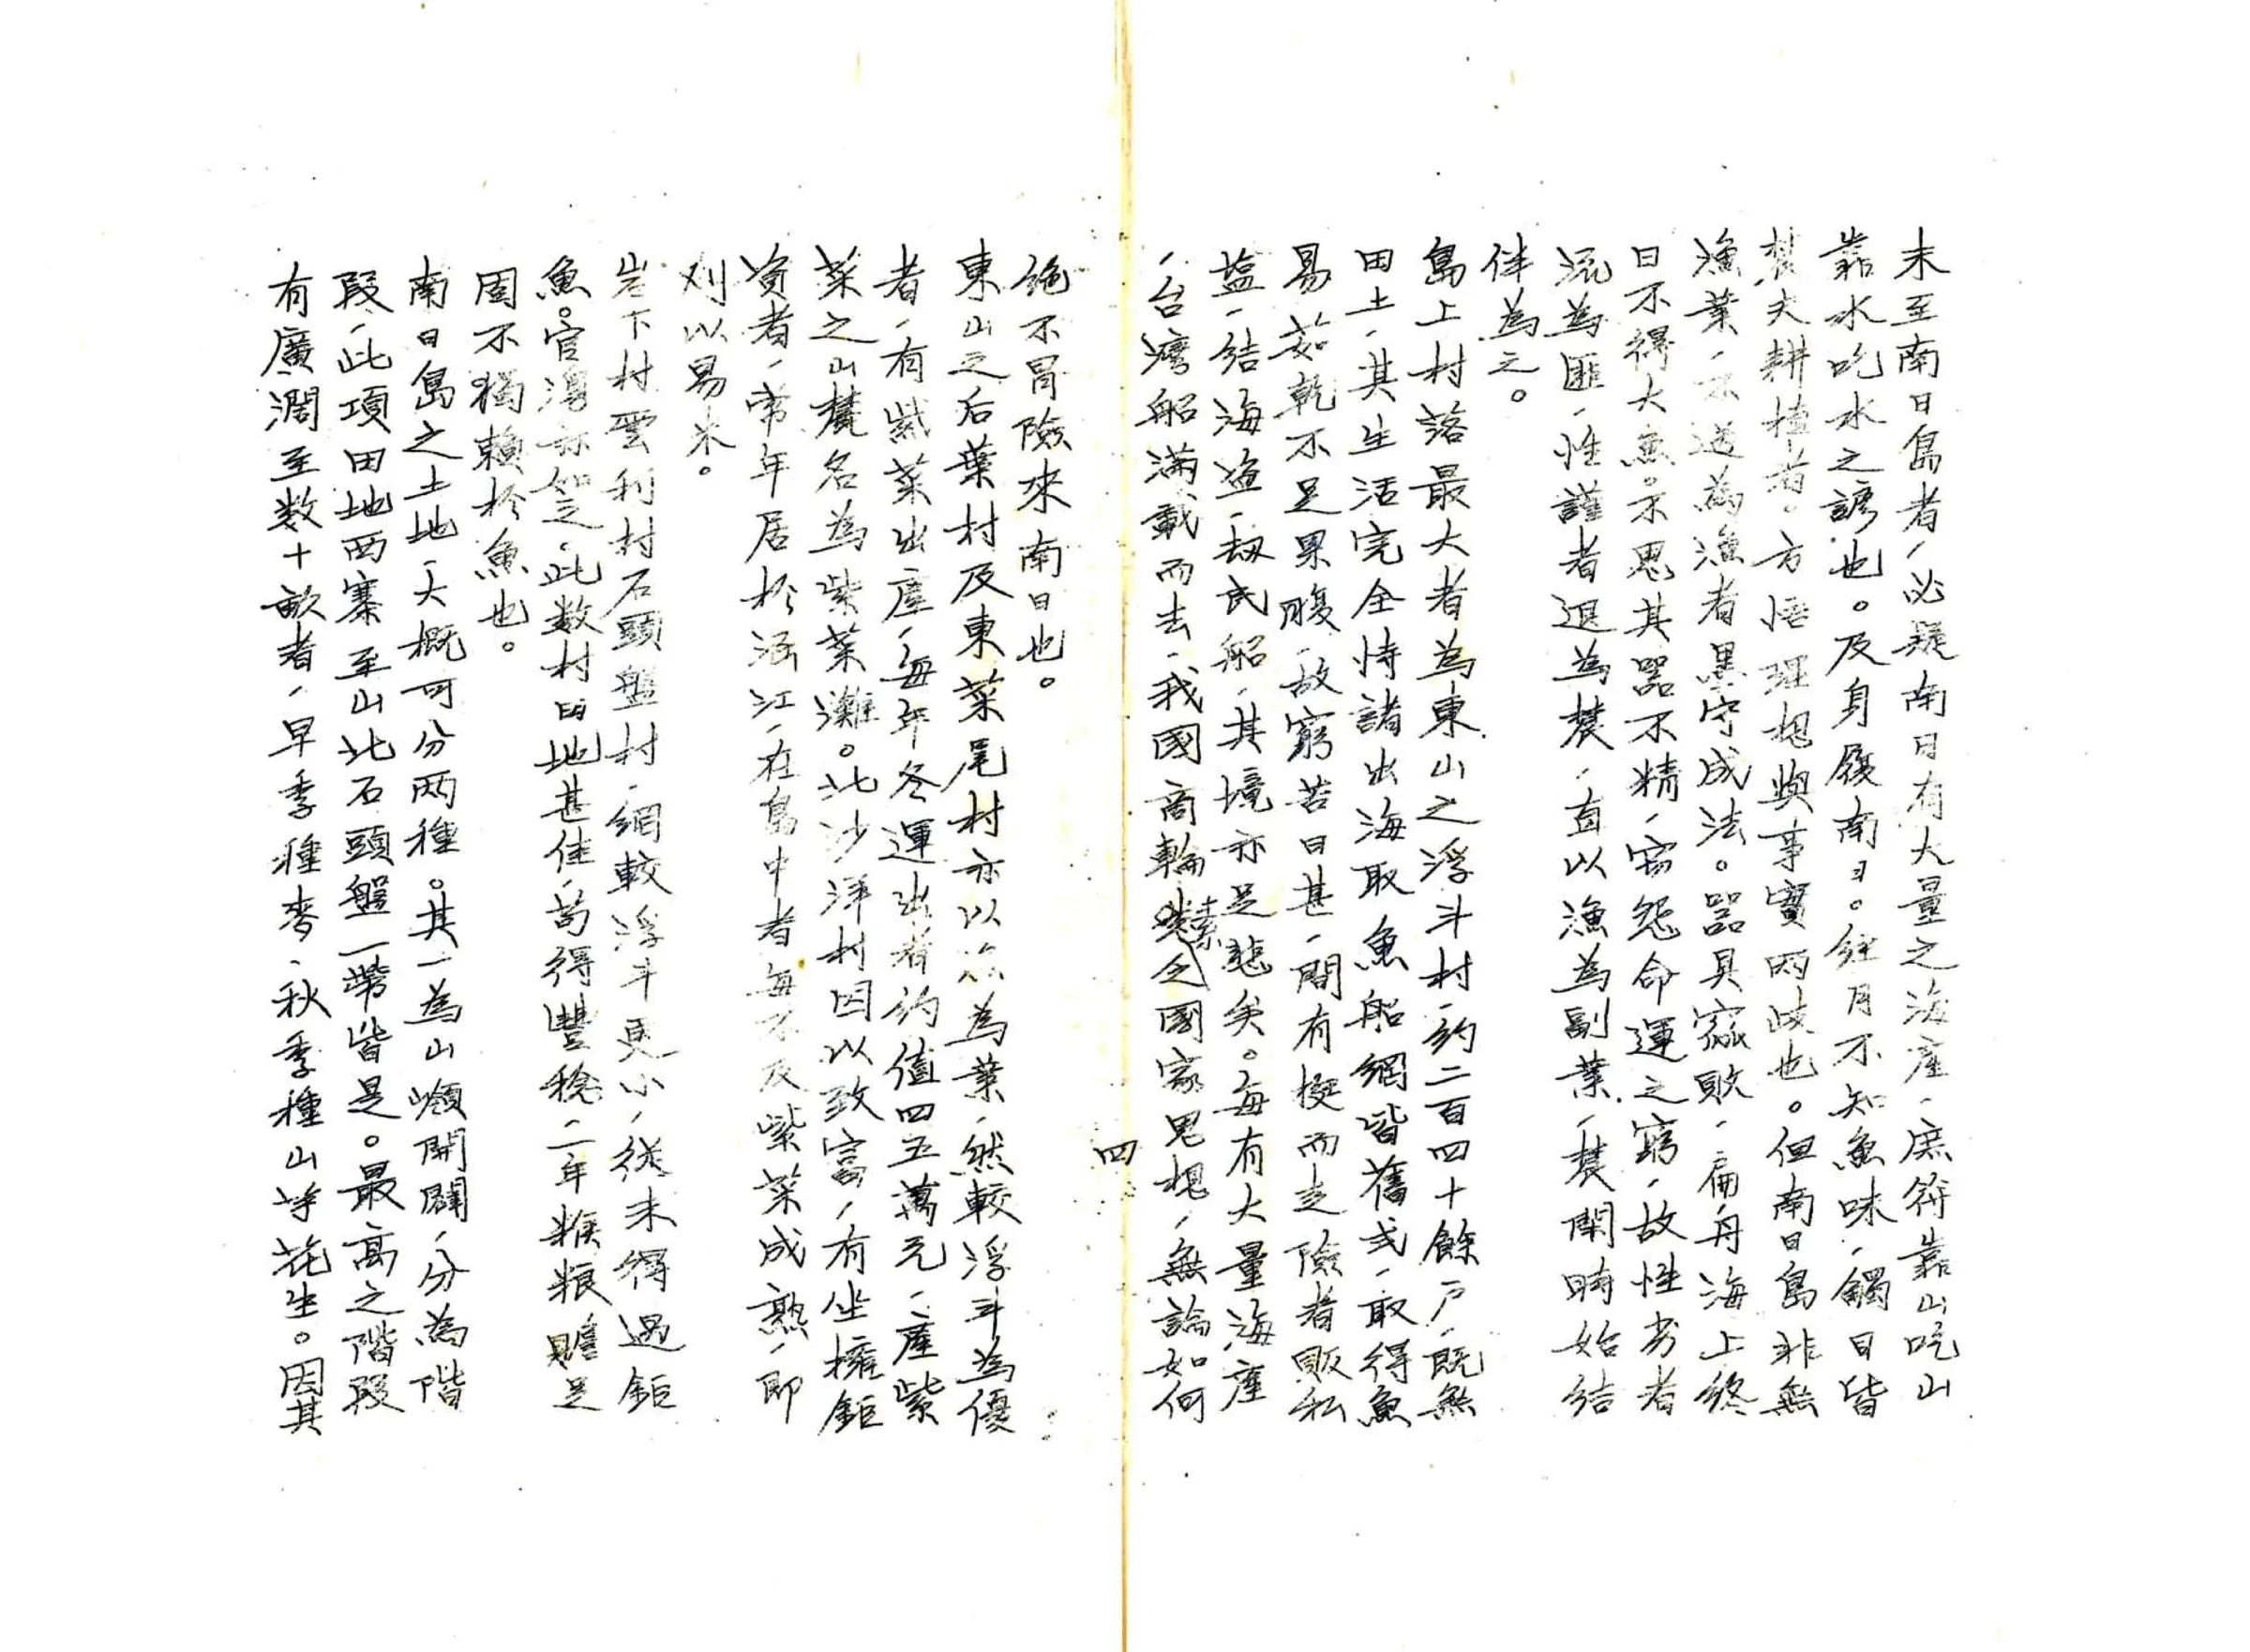 未至南日島者,必疑南日有大量之海產,庶符靠山吃山
靠水吃水之諺也。及身履南日。經月不知魚味,觸目皆
農夫耕植者。方悟理想與事實两歧也。但南日島非無
漁業,不過為漁者墨守成法。器具窳敗,扁舟海上終
日不得大魚。不思其器不精,窃怨命運之窮,故性劣者
流為匪,性謹者退為農,直以漁為副業,農閑時始結
伴為之。
島上村落最大者為東山之浮斗村,約二百四十餘户,既無
田土,其生活完全恃諸出海取魚船網皆舊式,取得魚
易茹乾不足果腹,故窮苦日甚,間有梃而走險者販私
盐,结海盗,刼民船,其境亦足悲矣。每有大量海產
,台灣船滿載而去,我國商輪素國家思想,無論如何
四
絶不冐險來南日也。
東山之后葉村及東菜尾村亦以漁為業,然較浮斗為優
者,有紫菜出產,每年冬運出者約值四五萬元,產紫
菜之山麓名為紫菜灘。北沙洋村因以致富,有坐擁鉅
資者,常年居於涵江,在島中者每不及紫菜成熟,即
刈以易米。
岩下村雲利村石頭盤村,網較浮斗更小,從未得過鉅
魚。官灣亦如之。此数村田地甚佳,苟得豐稔,二年糇粮贍足
固不獨賴於魚也。
南日島之土地,大概可分两種。其一為山嶺開闢,分為階
段,此項田地西寨至山北石頭盤一帶皆是。最高之階段
有廣濶至数十畝者,早季種麥,秋季種山芋花生。因其